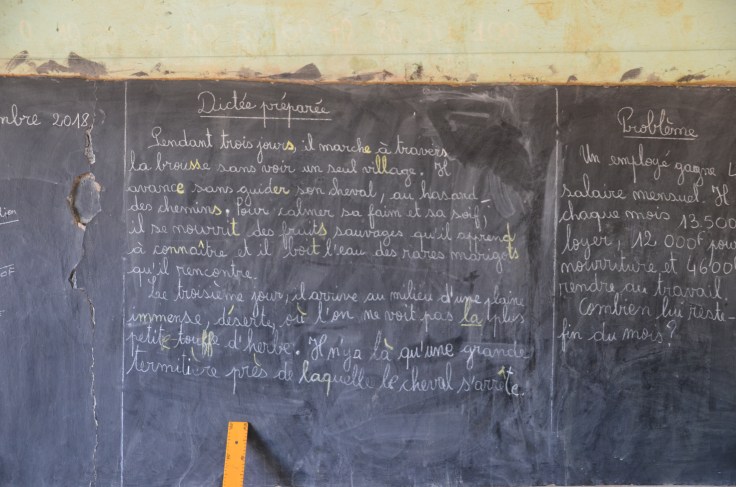 mbre 2018
Dictée préparée
Pendant trois jours, il marche à travers
la brousse sans voir un seul village. Il
avance sans guider son cheval, au hasard
des chemins. Pour calmer sa faim et sa soif,
il se nourrit des fruits sauvages qu'il apprend
à connaître et il boit l'eau des rares marigots
qu'il rencontre.
Le troisième jour, il arrive au milieu d'une plaine
immense, déserte, où l'on ne voit pas la plus
petite touffe d'herbe. Il n'y a là qu'une grande
termitière près de laquelle le cheval s'arrête.
Problème
Un employé gagne
salaire mensuel. Il
chaque mois 13.500
loyer, 12 000f pour
nourriture et 4600f
rendre au travail.
Combien lui reste-
fin du mois?